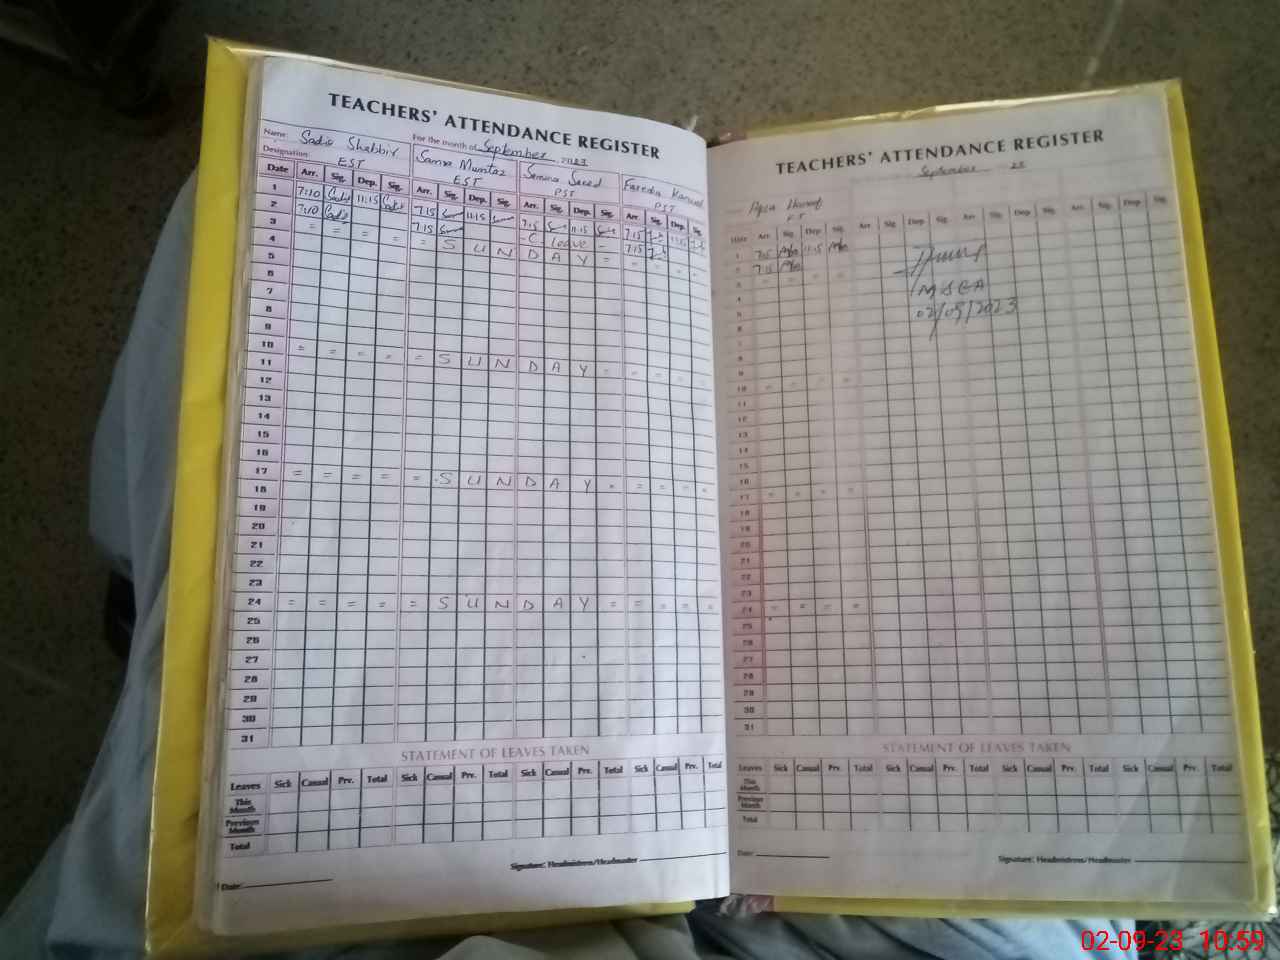 TEACHERS' ATTENDANCE REGISTER
Name: Sadia Shabbir For the month of September 2023
Designation: EST Samra Mumtaz EST Samina Saeed PST PST
Date Arr. Sig. Dep. Sig. Arr. Sig. Dep. Sig. Arr. Sig. Dep. Sig. Arr. Sig. Dep. Sig.
1 7:10 Sadia 11:15 Sadia 7:15 11:15 7:15 11:15 7:15
2 7:10 Sadia 7:15 - C leave - 7:15
3 = = = = = S U N D A Y = = = = =
4
5
6
7
8
9
10 = = = = = S U N D A Y = = = = =
11
12
13
14
15
16
17 = = = = = S U N D A Y = = = = =
18
19
20
21
22
23
24 = = = = = S U N D A Y = = = = =
25
26
27
28
29
30
31
STATEMENT OF LEAVES TAKEN
Leaves Sick Casual Prv. Total Sick Casual Prv. Total Sick Casual Prv. Total Sick Casual Prv. Total
This Month
Previous Month
Total
Signature: Headmistress/Headmaster
Date:
TEACHERS' ATTENDANCE REGISTER
September 23
Date Arr. Sig. Dep. Sig. Arr. Sig. Dep. Sig. Arr. Sig. Dep. Sig. Arr. Sig. Dep. Sig.
1 7:15 11:15
2 7:15
3 = = = =
4
5
6
7
8
9
10 = = = =
11
12
13
14
15
16
17 = = = =
18
19
20
21
22
23
24 = = = =
25
26
27
28
29
30
31
MSEA
02/09/2023
STATEMENT OF LEAVES TAKEN
Leaves Sick Casual Prv. Total Sick Casual Prv. Total Sick Casual Prv. Total Sick Casual Prv. Total
This Month
Previous Month
Total
Date:
Signature: Headmistress/Headmaster
02-09-23 10:59